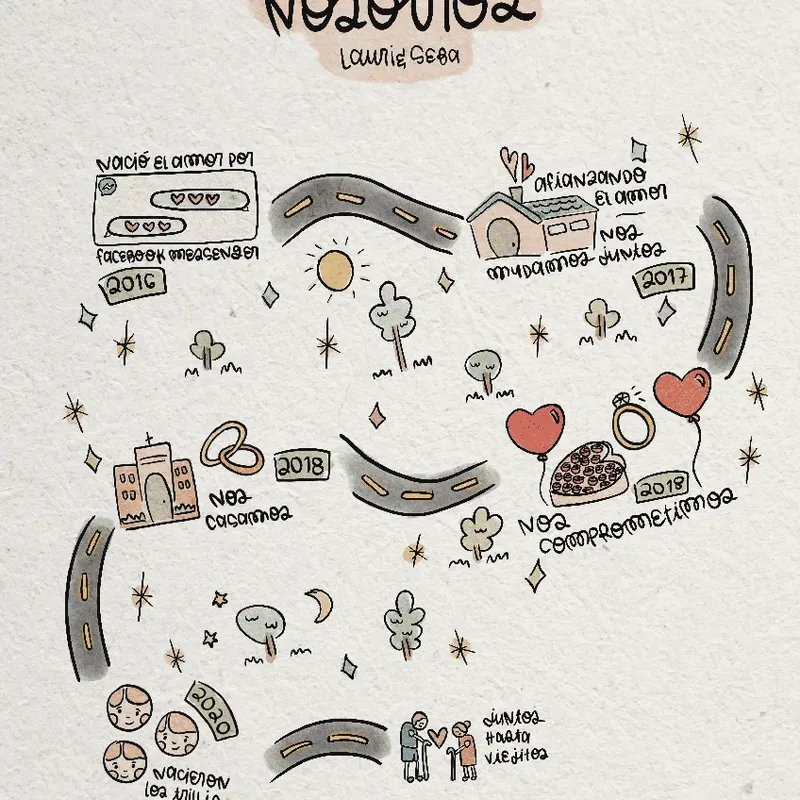 NOSOTROS
Lauri & Seba
Nació el amor por
facebook messenger
2016
Afianzando
el amor
Nos
mudamos juntos
2017
2018
Nos
comprometimos
2018
Nos
casamos
2020
Nacieron
los trilli
Juntos
hasta
viejitos